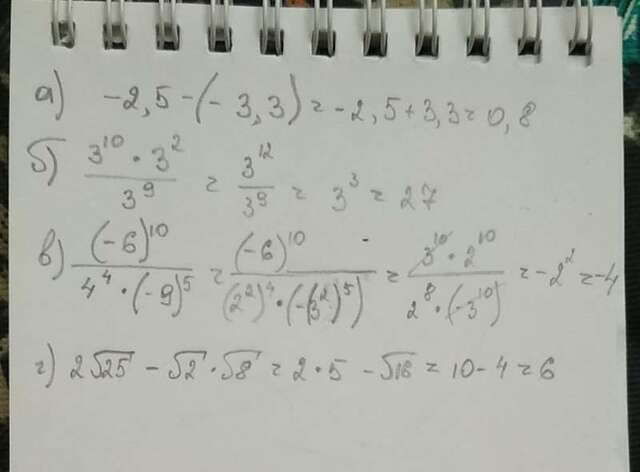 а) -2,5 - (-3,3) = -2,5 + 3,3 = 0,8
б) (3^10 · 3^2)/(3^9) = (3^12)/(3^9) = 3^3 = 27
в) ((-6)^10)/(4^4 · (-9)^5) = ((-6)^10)/((2^2)^4 · (-(3^2)^5)) = (3^10 · 2^10)/(2^8 · (-3^10)) = -2^2 = -4
г) 2√25 - √2 · √8 = 2 · 5 - √16 = 10 - 4 = 6